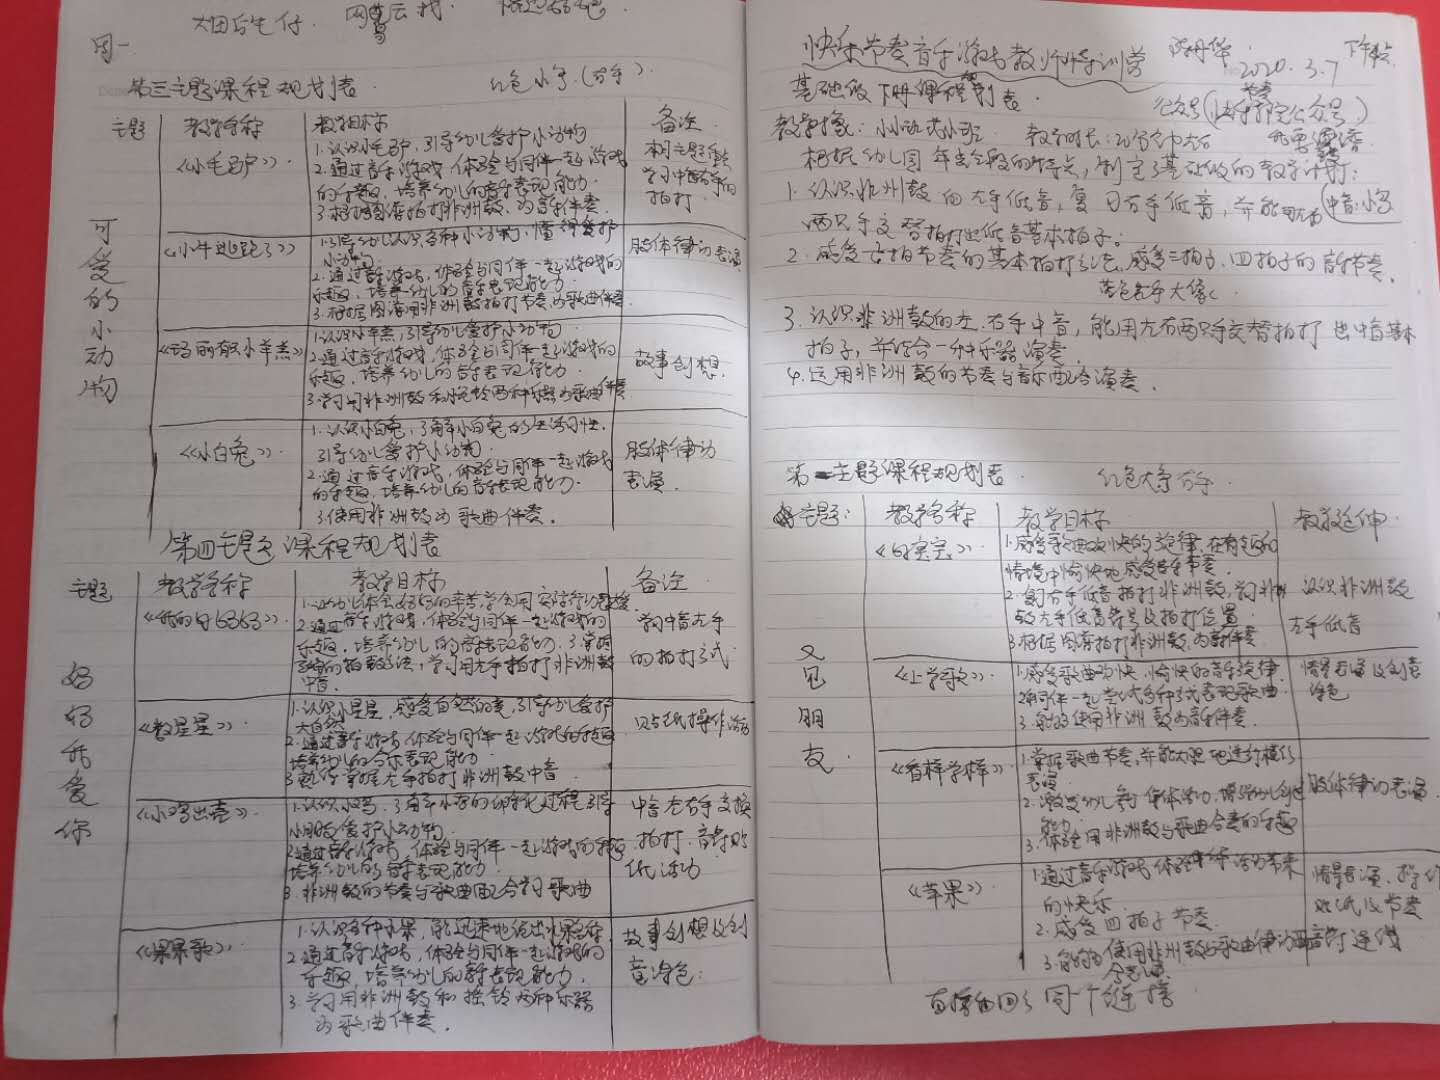 周一
第三主题课程规划表 红色小手(右手)
主题 教学名称 教学目标 备注
可爱的小动物
《小毛驴》
1.认识小毛驴,引导幼儿爱护小动物
2.通过音乐游戏,体验与同伴一起游戏
的乐趣,培养幼儿的音乐表现能力.
3.根据图谱拍打非洲鼓,为音乐伴奏
本主题重点
学习中音右手的
拍打.
《小牛逃跑了》
1.引导幼儿认识各种小动物,懂得爱护
小动物.
2.通过音乐游戏,体验与同伴一起游戏的
乐趣,培养幼儿的音乐表现能力
3.根据图谱用非洲鼓拍打节奏为歌曲伴奏
肢体律动表演
《玛丽有只小羊羔》
1.认识小羊羔,引导幼儿爱护小动物
2.通过音乐游戏,体验与同伴一起游戏的
乐趣,培养幼儿的音乐表现能力.
3.学习用非洲鼓和 两种乐器为歌曲伴奏
故事创想.
《小白兔》
1.认识小白兔,了解小白兔的生活习性.
引导幼儿爱护小动物.
2.通过音乐游戏,体验与同伴一起游戏
的乐趣,培养幼儿的音乐表现能力.
3.使用非洲鼓为歌曲伴奏.
肢体律动
表演.
第四主题课程规划表
主题 教学名称 教学目标 备注
好好我爱你
《我的好妈妈》
1.让幼儿体会妈妈的辛劳,学会用实际行动
2.通过音乐游戏,体验与同伴一起游戏的
乐趣,培养幼儿的音乐表现能力.3.掌握
的拍鼓方法,学习用左手拍打非洲鼓
中音.
学习中音左手
的拍打方式
《数星星》
1.认识小星星,感受自然的美,引导幼儿爱护
大自然
2.通过音乐游戏,体验与同伴一起游戏的乐趣
培养幼儿的音乐表现能力
3.熟练掌握左手拍打非洲鼓中音.
操作活动
《小鸡出壳》
1.认识小鸡,了解小鸡的孵化过程,引导
小朋友爱护小动物.
2.通过音乐游戏,体验与同伴一起游戏的乐趣
培养幼儿的音乐表现能力.
3.非洲鼓的节奏与歌曲配合学习歌曲
中音左右手交换
拍打.音符贴
纸活动
《果果歌》
1.认识各种水果,能迅速地说出水果名称
2.通过音乐游戏,体验与同伴一起游戏的
乐趣,培养幼儿的音乐表现能力.
3.学习用非洲鼓和摇铃两种乐器
为歌曲伴奏.
故事创想及创
意涂色.
快乐节奏音乐游戏教师培训营 陈丹华. 下午
2020.3.7
基础级下册课程规划表.
公众号(快乐节奏公众号)
教学对象:小小班或小班 教学时长:20分钟左右
根据幼儿园年龄段的特点,制定了基础级的教学计划:
1.认识非洲鼓的左手低音,复习右手低音,并能用左右(中音:小鸟)
两只手交替拍打出低音基本拍子.
2.感受六拍节奏的基本拍打方法,感受三拍子、四拍子的音乐节奏.
蓝色右手大象
3.认识非洲鼓的左.右手中音,能用左右两只手交替拍打出中音基本
拍子,并结合一种乐器演奏.
4.运用非洲鼓的节奏与音乐配合演奏.
第一主题课程规划表 红色大字右手
主题: 教学名称 教学目标 教学延伸
又见朋友
《好宝宝》
1.感受歌曲欢快的旋律,在有趣的
情境中愉快地感受音乐节奏.
2.复习右手低音拍打非洲鼓,学习非洲
鼓左手低音符号及拍打位置.
3.根据图谱拍打非洲鼓,为音乐伴奏.
认识非洲鼓
左手低音
《上学歌》
1.感受歌曲欢快、愉快的音乐旋律.
2.和同伴一起尝试多种方式表现歌曲
3.能够使用非洲鼓为音乐伴奏.
情景表演及创意
涂色
《看样学样》
1.掌握歌曲节奏,并能大胆地进行模仿
表演
2.激发幼儿参与集体活动,
能力.
3.体验用非洲鼓与歌曲合奏的乐趣
肢体律动表演.
《苹果》
1.通过音乐游戏体验集体活动带来
的快乐.
2.感受四拍子节奏.
3.能够使用非洲鼓与歌曲律动配
合表演.
情景表演、
贴纸及节奏
音符连线
直播回 同一个链接